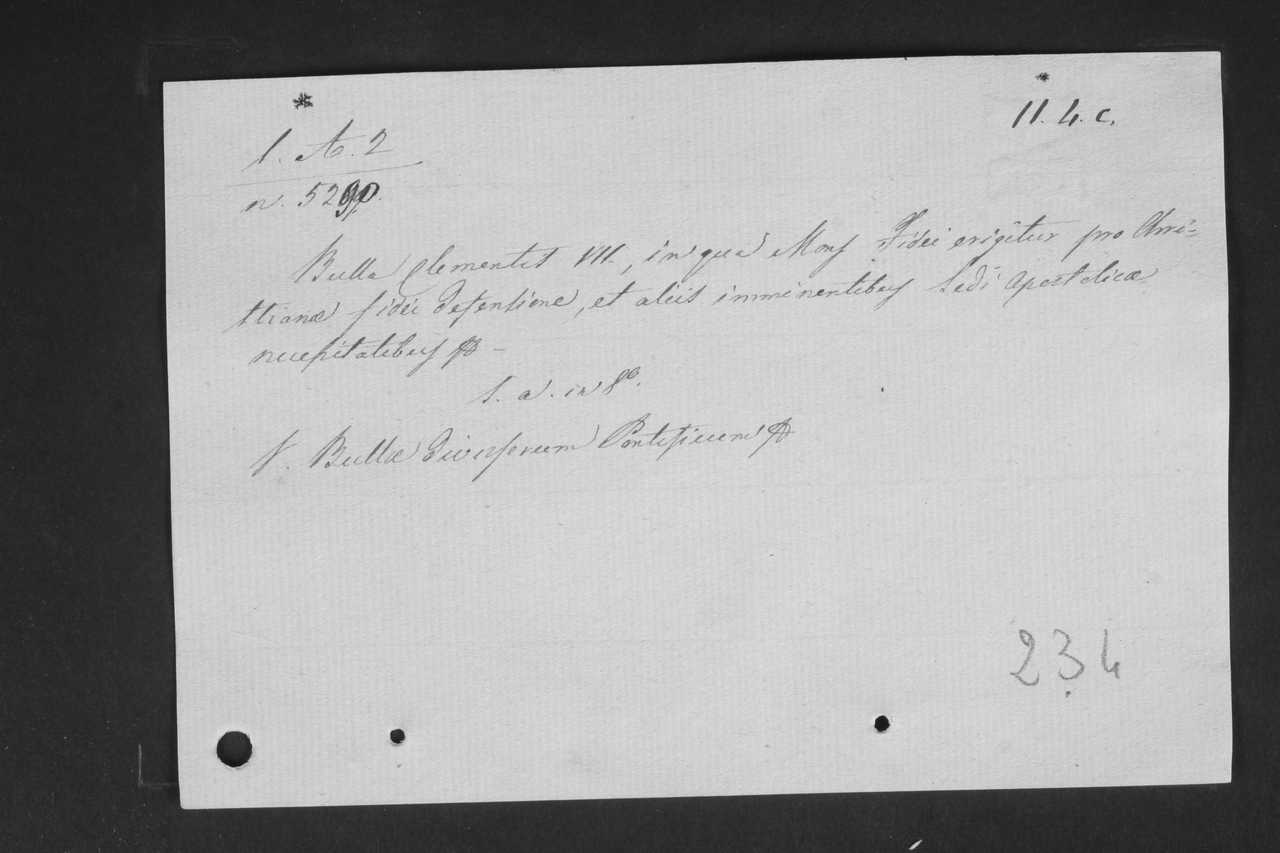 *
*
1. A. 2
11. 4. c.
n. 5290.
Bulla Clementis VII, in qua Mons Fidei erigitur pro Chri-
stianæ fidei defensione, et aliis imminentibus Sedi Apostolicæ
necessitatibus &c -
s. a. in 8º.
V. Bullæ diversorum Pontificum &c
234